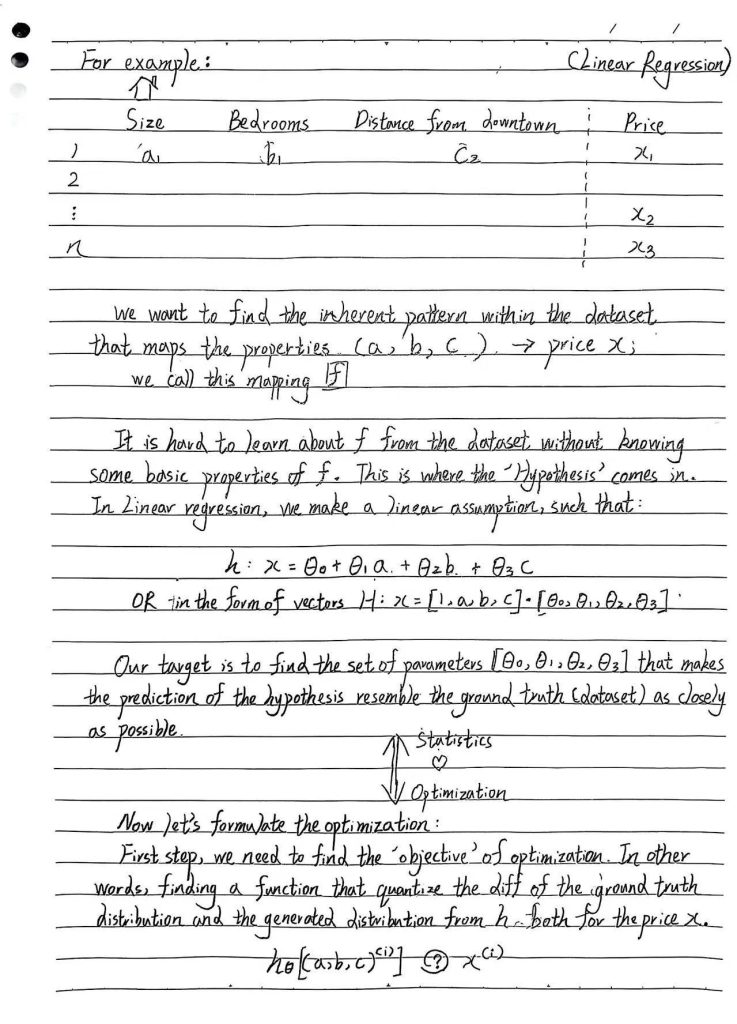 / /
For example: (Linear Regression)
Size Bedrooms Distance from downtown Price
1 a₁ b₁ c₂ x₁
2
⋮ x₂
n x₃
We want to find the inherent pattern within the dataset
that maps the properties (a, b, c ) → price x;
we call this mapping f
It is hard to learn about f from the dataset without knowing
some basic properties of f. This is where the 'Hypothesis' comes in.
In Linear regression, we make a linear assumption, such that:
h: x = θ₀ + θ₁a + θ₂b + θ₃c
OR in the form of vectors H: x = [1, a, b, c]·[θ₀, θ₁, θ₂, θ₃]
Our target is to find the set of parameters [θ₀, θ₁, θ₂, θ₃] that makes
the prediction of the hypothesis resemble the ground truth (dataset) as closely
as possible.
Statistics
♡
Optimization
Now let's formulate the optimization:
First step, we need to find the 'objective' of optimization. In other
words, finding a function that quantize the diff of the ground truth
distribution and the generated distribution from h - both for the price x.
hθ[(a,b,c)⁽ⁱ⁾] (?) x⁽ⁱ⁾